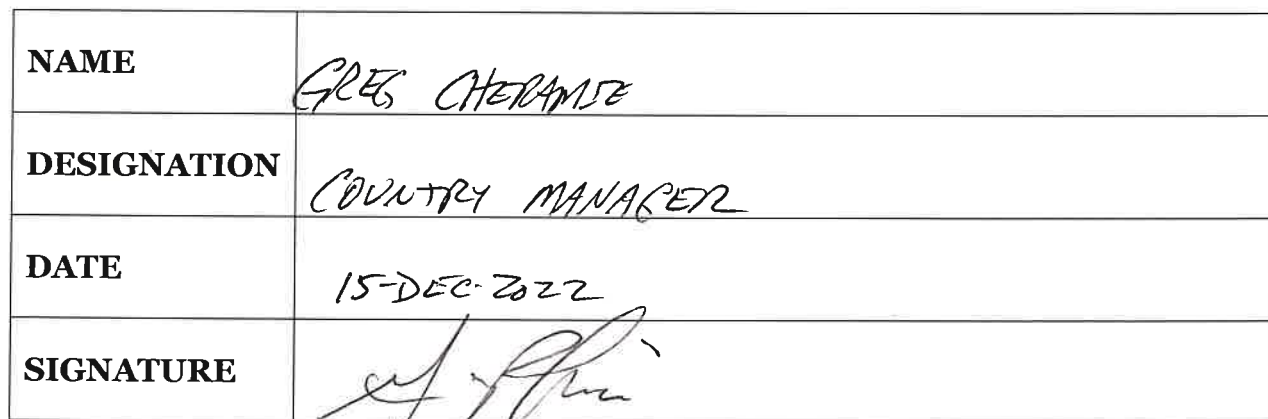 NAME GREG CHERAMIE
DESIGNATION COUNTRY MANAGER
DATE 15-DEC-2022
SIGNATURE